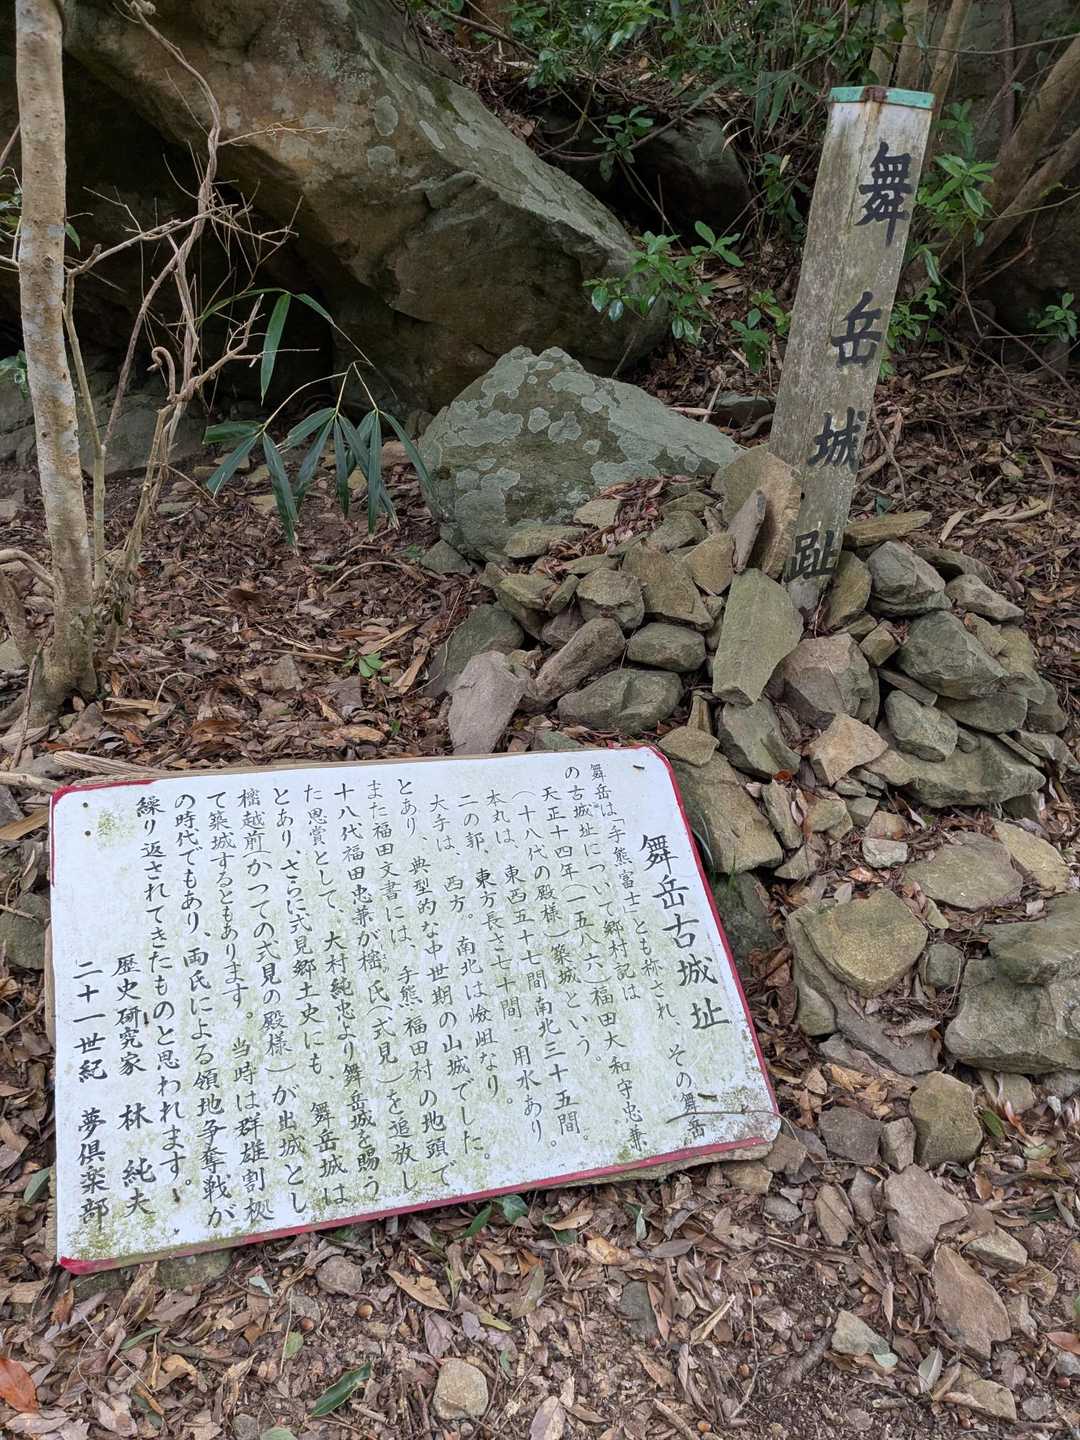 舞岳城趾
舞岳古城址
舞岳は「手熊富士」とも称され、その舞岳
の古城址について郷村記は
天正十四年（一五八六）福田大和守忠兼
（十八代の殿様）築城という。
本丸は、東西五十七間南北三十五間。
二の郭、東方長さ七十間・用水あり。
大手は、西方。南北は嶮岨なり。
とあり、典型的な中世期の山城でした。
また福田文書には、手熊福田村の地頭で
十八代福田忠兼が樒氏（式見）を追放し
た恩賞として、大村純忠より舞岳城を賜う
とあり、さらに式見郷土史にも、舞岳城は
樒越前（かつての式見の殿様）が出城とし
て築城するともあります。当時は群雄割拠
の時代でもあり、両氏による領地争奪戦が
繰り返されてきたものと思われます。
歴史研究家　林　純夫
二十一世紀　夢倶楽部